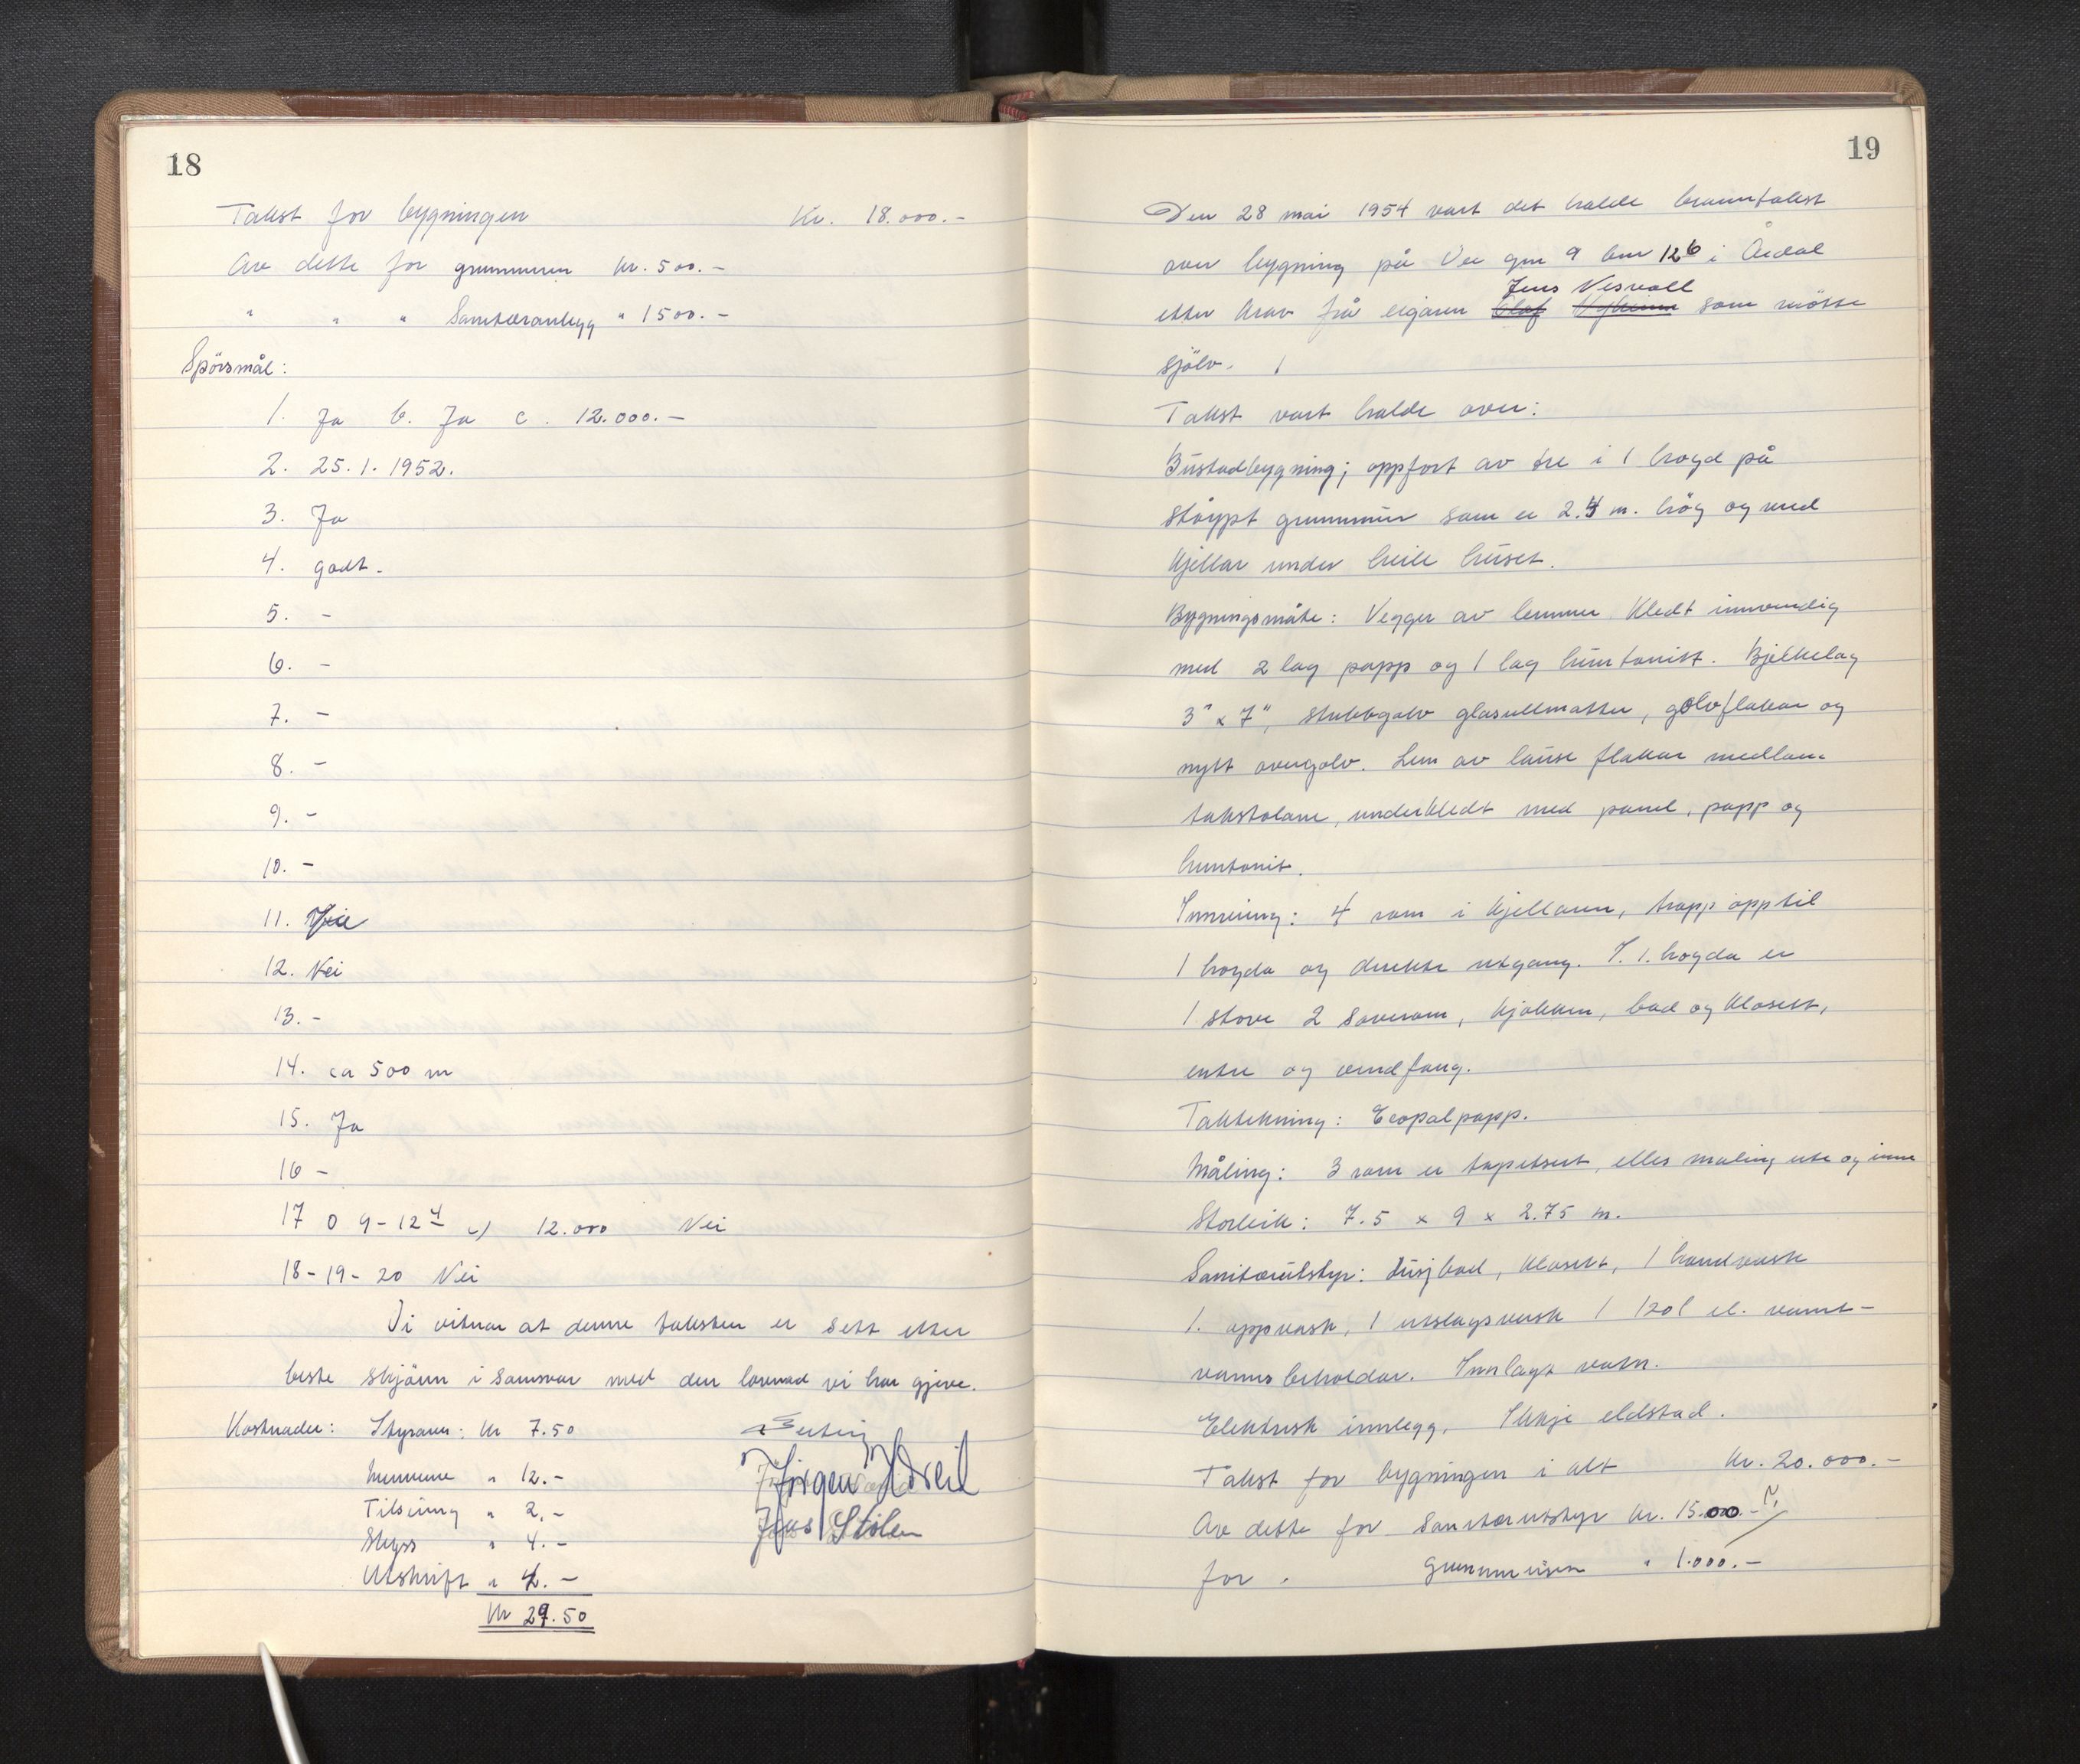 18
Takst for bygningen Kr. 18.000.-
Av dette for grunnmuren kr. 500.-
" " " Sanitæranlegg " 1500.-
Spörsmål:
1. Ja b. Ja c. 12.000.-
2. 25.1.1952.
3. Ja
4. godt.
5. -
6. -
7. -
8. -
9. -
10. -
11.
12. Nei
13. -
14. ca 500 m
15. Ja
16 -
17 0 9-12 c) 12.000 Nei
18-19-20 Nei
Vi vitnar at denne taksten er sett etter
beste skjönn i samsvar med den lovnad vi har gjeve.
Kostnader: Styraren: kr 7.50
Mennene " 12.-
Tilsining " 2.-
Skyss " 4.-
Utskrift " 4.-
kr 29.50
Jørgen
Jens Stölen
19
Den 28 mai 1954 vart det halde branntakst
over bygning på Ve gnr 9 bnr 126 i Årdal
Jens Vesvoll
etter krav frå eigaren Olaf som mötte
sjölv.
Takst vart halde over:
Bustadbygning; oppfort av tre i 1 høgd på
støypt grunnmur som er 2.4 m. hög og med
kjellar under heile huset.
Bygningsmåte: Vegger av lemmer kledt innvendig
med 2 lag papp og 1 lag huntonitt. Bjelkelag
3" x 7", stubbgolv glasullmatter, golvflakar og
nytt overgolv. Lem av lause flakar mellom
takstolane, underkledt med panel, papp og
huntonit.
Innreiing: 4 rom i kjellaren, trapp opp til
1 høgda og direkte utgang. I 1. høgda er
1 stove 2 soverom, kjøkken, bad og klosett,
entre og vindfang.
Taktekning: Icopalpapp.
Måling: 3 rom er tapetsert, elles maling ute og inne
Storleik: 7.5 x 9 x 2.75 m.
Sanitærutstyr: Dusjbad, klosett, 1 handvask
1. oppvask, 1 utslagsvask 1 120 l el. varmt-
vannsbeholdar. Innlagt vatn.
Elektrisk innlegg. Ikkje eldstad.
Takst for bygningen i alt kr. 20.000.-
Av dette for sanitærutstyr kr. 1500.-
for . grunnmuren " 1.000.-